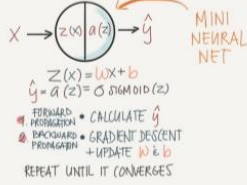 X → z(x) | a(z) → ŷ
MINI
NEURAL
NET
Z(x) = wx + b
ŷ = a(z) = σ SIGMOID(z)
1. FORWARD PROPAGATION • CALCULATE ŷ
2. BACKWARD PROPAGATION • GRADIENT DESCENT
+ UPDATE w & b
REPEAT UNTIL IT CONVERGES